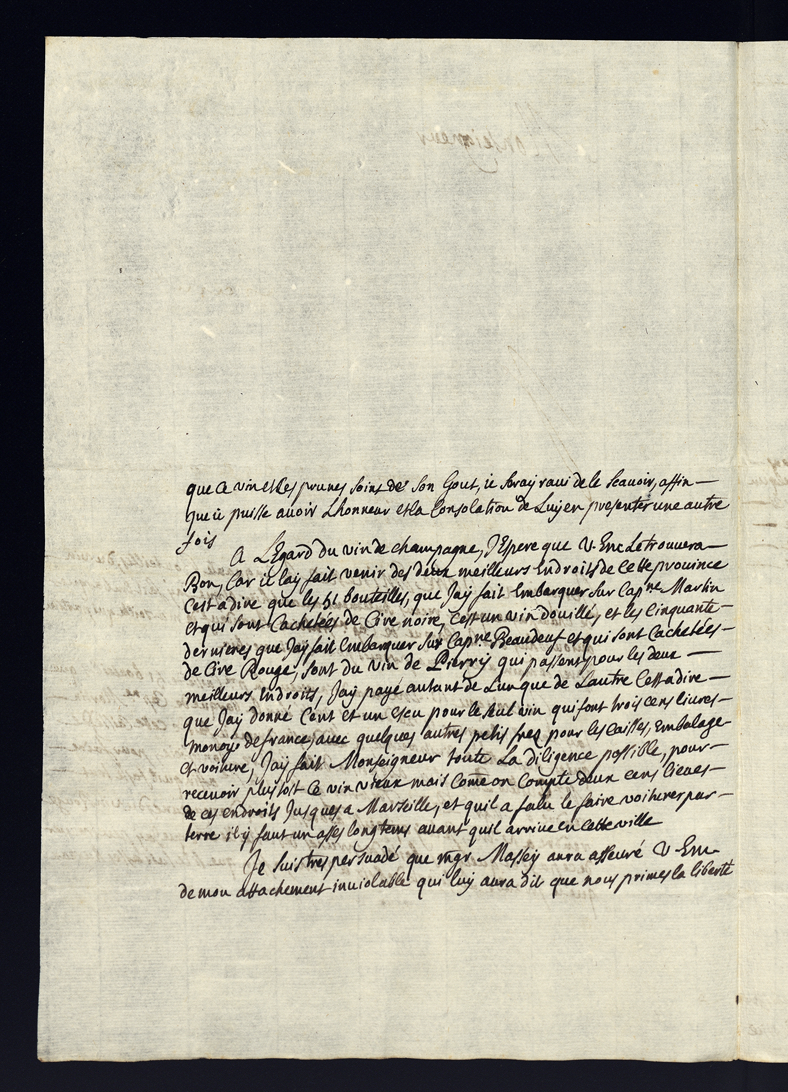 que ce vin et les prunes soint de son Gout, ie seray raui de le scauoir, affin
que ie puisse auoir Lhonneur et la Consolation de Luy en presenter une autre
fois
A LEgard du vin de champagne, J'Espere que V. Emce Le trouuera
Bon, Car ie lay fait venir des deux meilleurs Endroits de Cette prouince
C'est a dire que les 51 bouteilles, que Jay fait Embarquer sur Capne Martin
et qui sont Cachetées de Cire noire, C'est un vin douillé, et les Cinquante
dernieres que Jay fait Embarquer sur Capne Beaudeuf et qui sont Cachetées
de Cire Rouge, sont du vin de Pierry qui passent pour les deux
meilleurs Endroits, Jay payé autant de Lun que de Lautre C'est a dire
que Jay donné Cent et un Escu pour le seul vin qui font trois cens liures
monoye de france, auec quelques autres petis frez pour les Caisses, Embalage
et voiture, Jay fait Monseigneur toute La diligence possible, pour
receuoir plustost Ce vin vieux mais Come on Compte deux cens lieues
de ces endroits Jusques a Marseille, et quil a falu le faire voiturer par
terre il y faut un asses long tems auant quil arriue en Cette ville
Je suis tres persuadé que mgr Massey aura asseuré V. Em.
de mon attachement inuiolable qui luy aura dit que nous primes la liberté